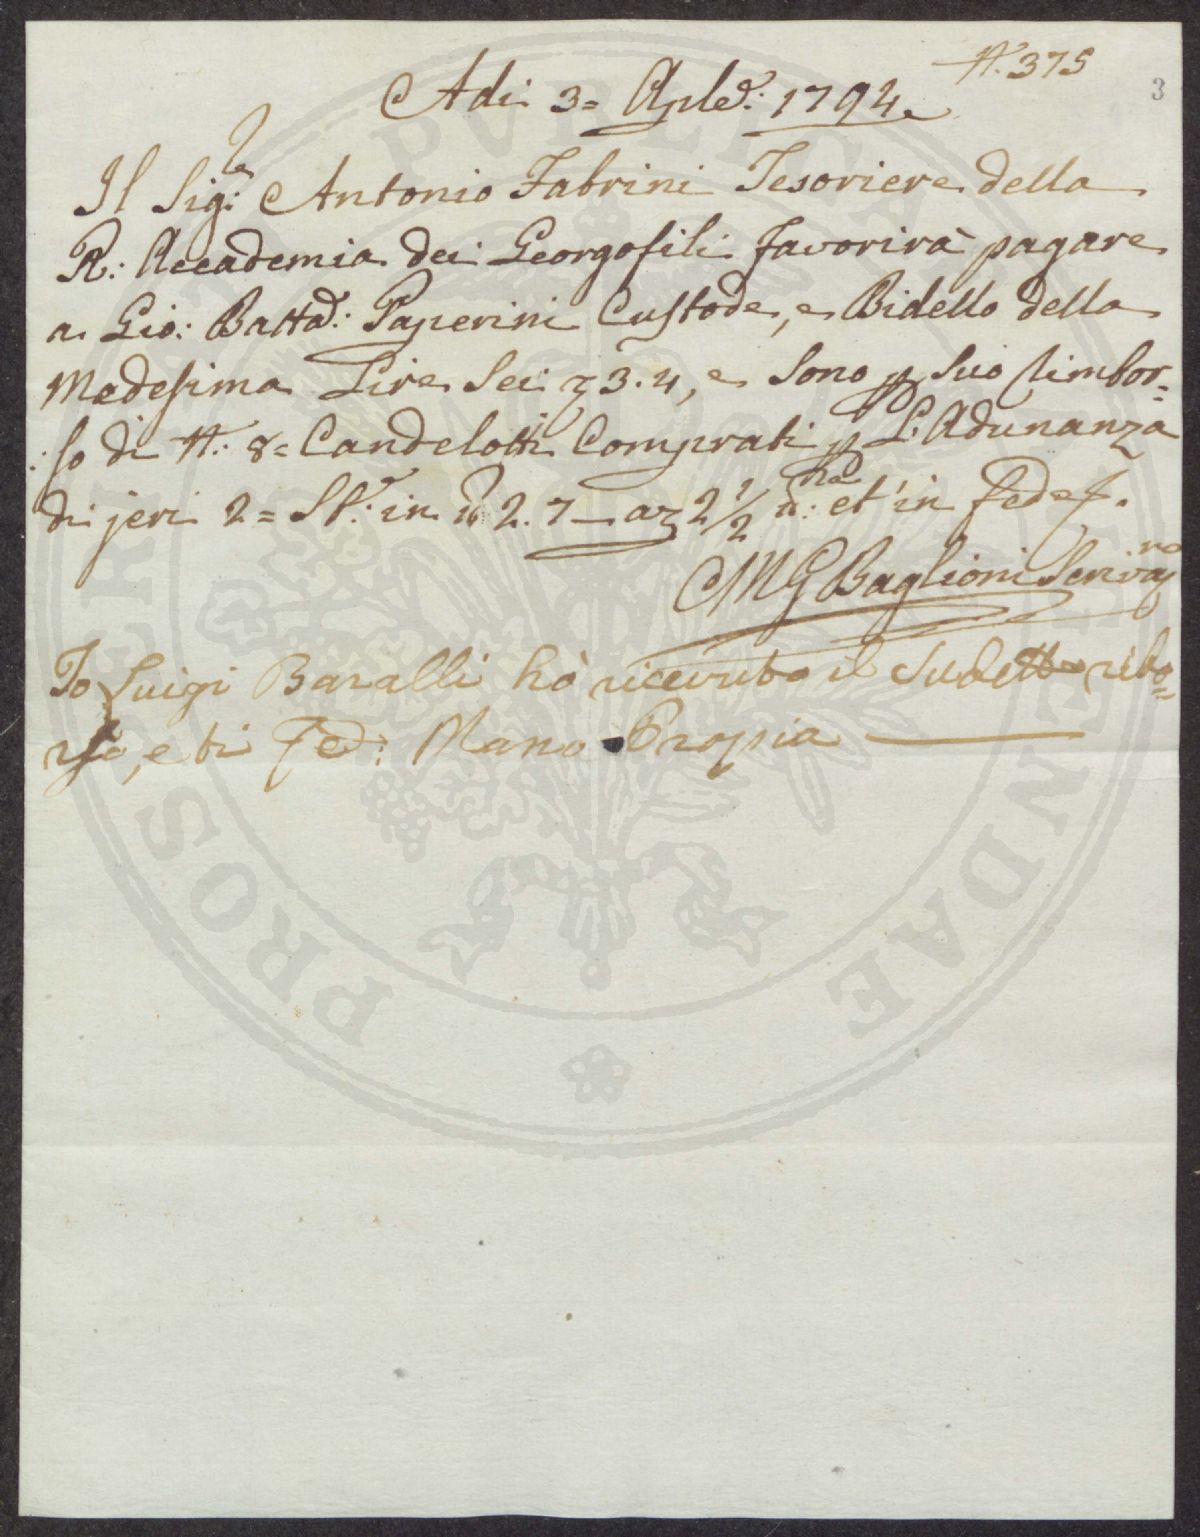 N. 375
3
Adi 3= Aple: 1794.
Il Sig:re Antonio Fabrini Tesoriere della
R: Accademia dei Georgofili favorirà pagare
a Gio: Batta: Paperini Custode, e Bidello della
Madesima Lire Sei 3. 4, e sono p suo rimbor=
:so di N: 8= Candelotti Comprati p L: Adunanza
di jeri 2= St: in 2. 7 — a 2 1/2 et in fede
MGBaglioni Scriv:no
Io Luigi Baralli hò ricevuto il Sudetto ribo=
rso, e ti Fed: Mano Propia
PVBLICAE
PROSPERITATI
AVGENDAE